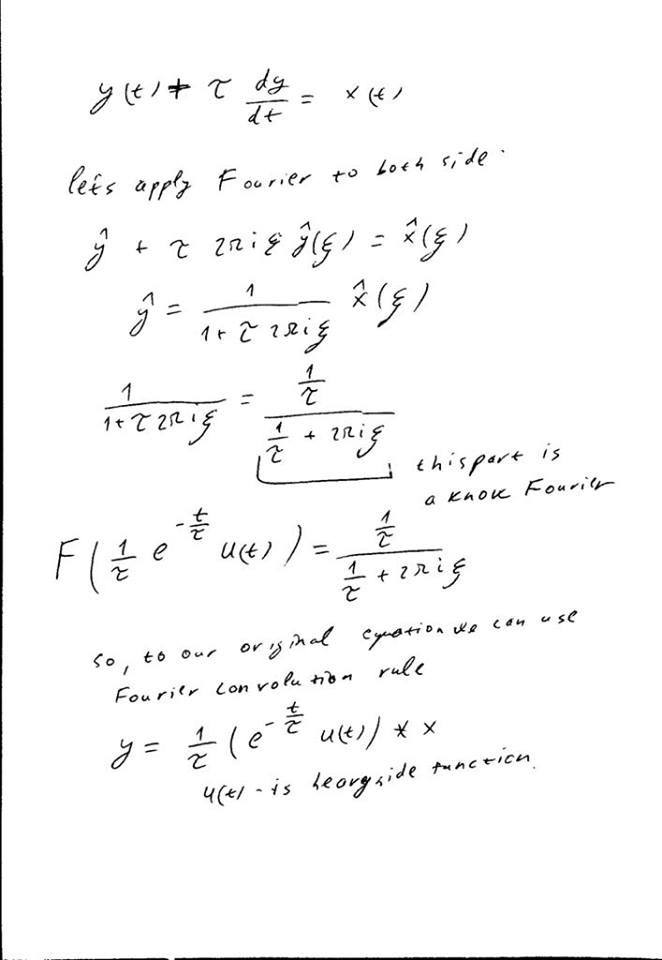 y(t) + τ dy/dt = x(t)
lets apply Fourier to both side.
ŷ + τ 2πiξ ŷ(ξ) = x̂(ξ)
ŷ = 1/(1+τ2πiξ) x̂(ξ)
1/(1+τ2πiξ) = (1/τ)/(1/τ + 2πiξ)
this part is
a know Fourier
F(1/τ e^(-t/τ) u(t)) = (1/τ)/(1/τ + 2πiξ)
so, to our original equation we can use
Fourier convolution rule
y = 1/τ (e^(-t/τ) u(t)) * x
u(t) - is heavyside function.